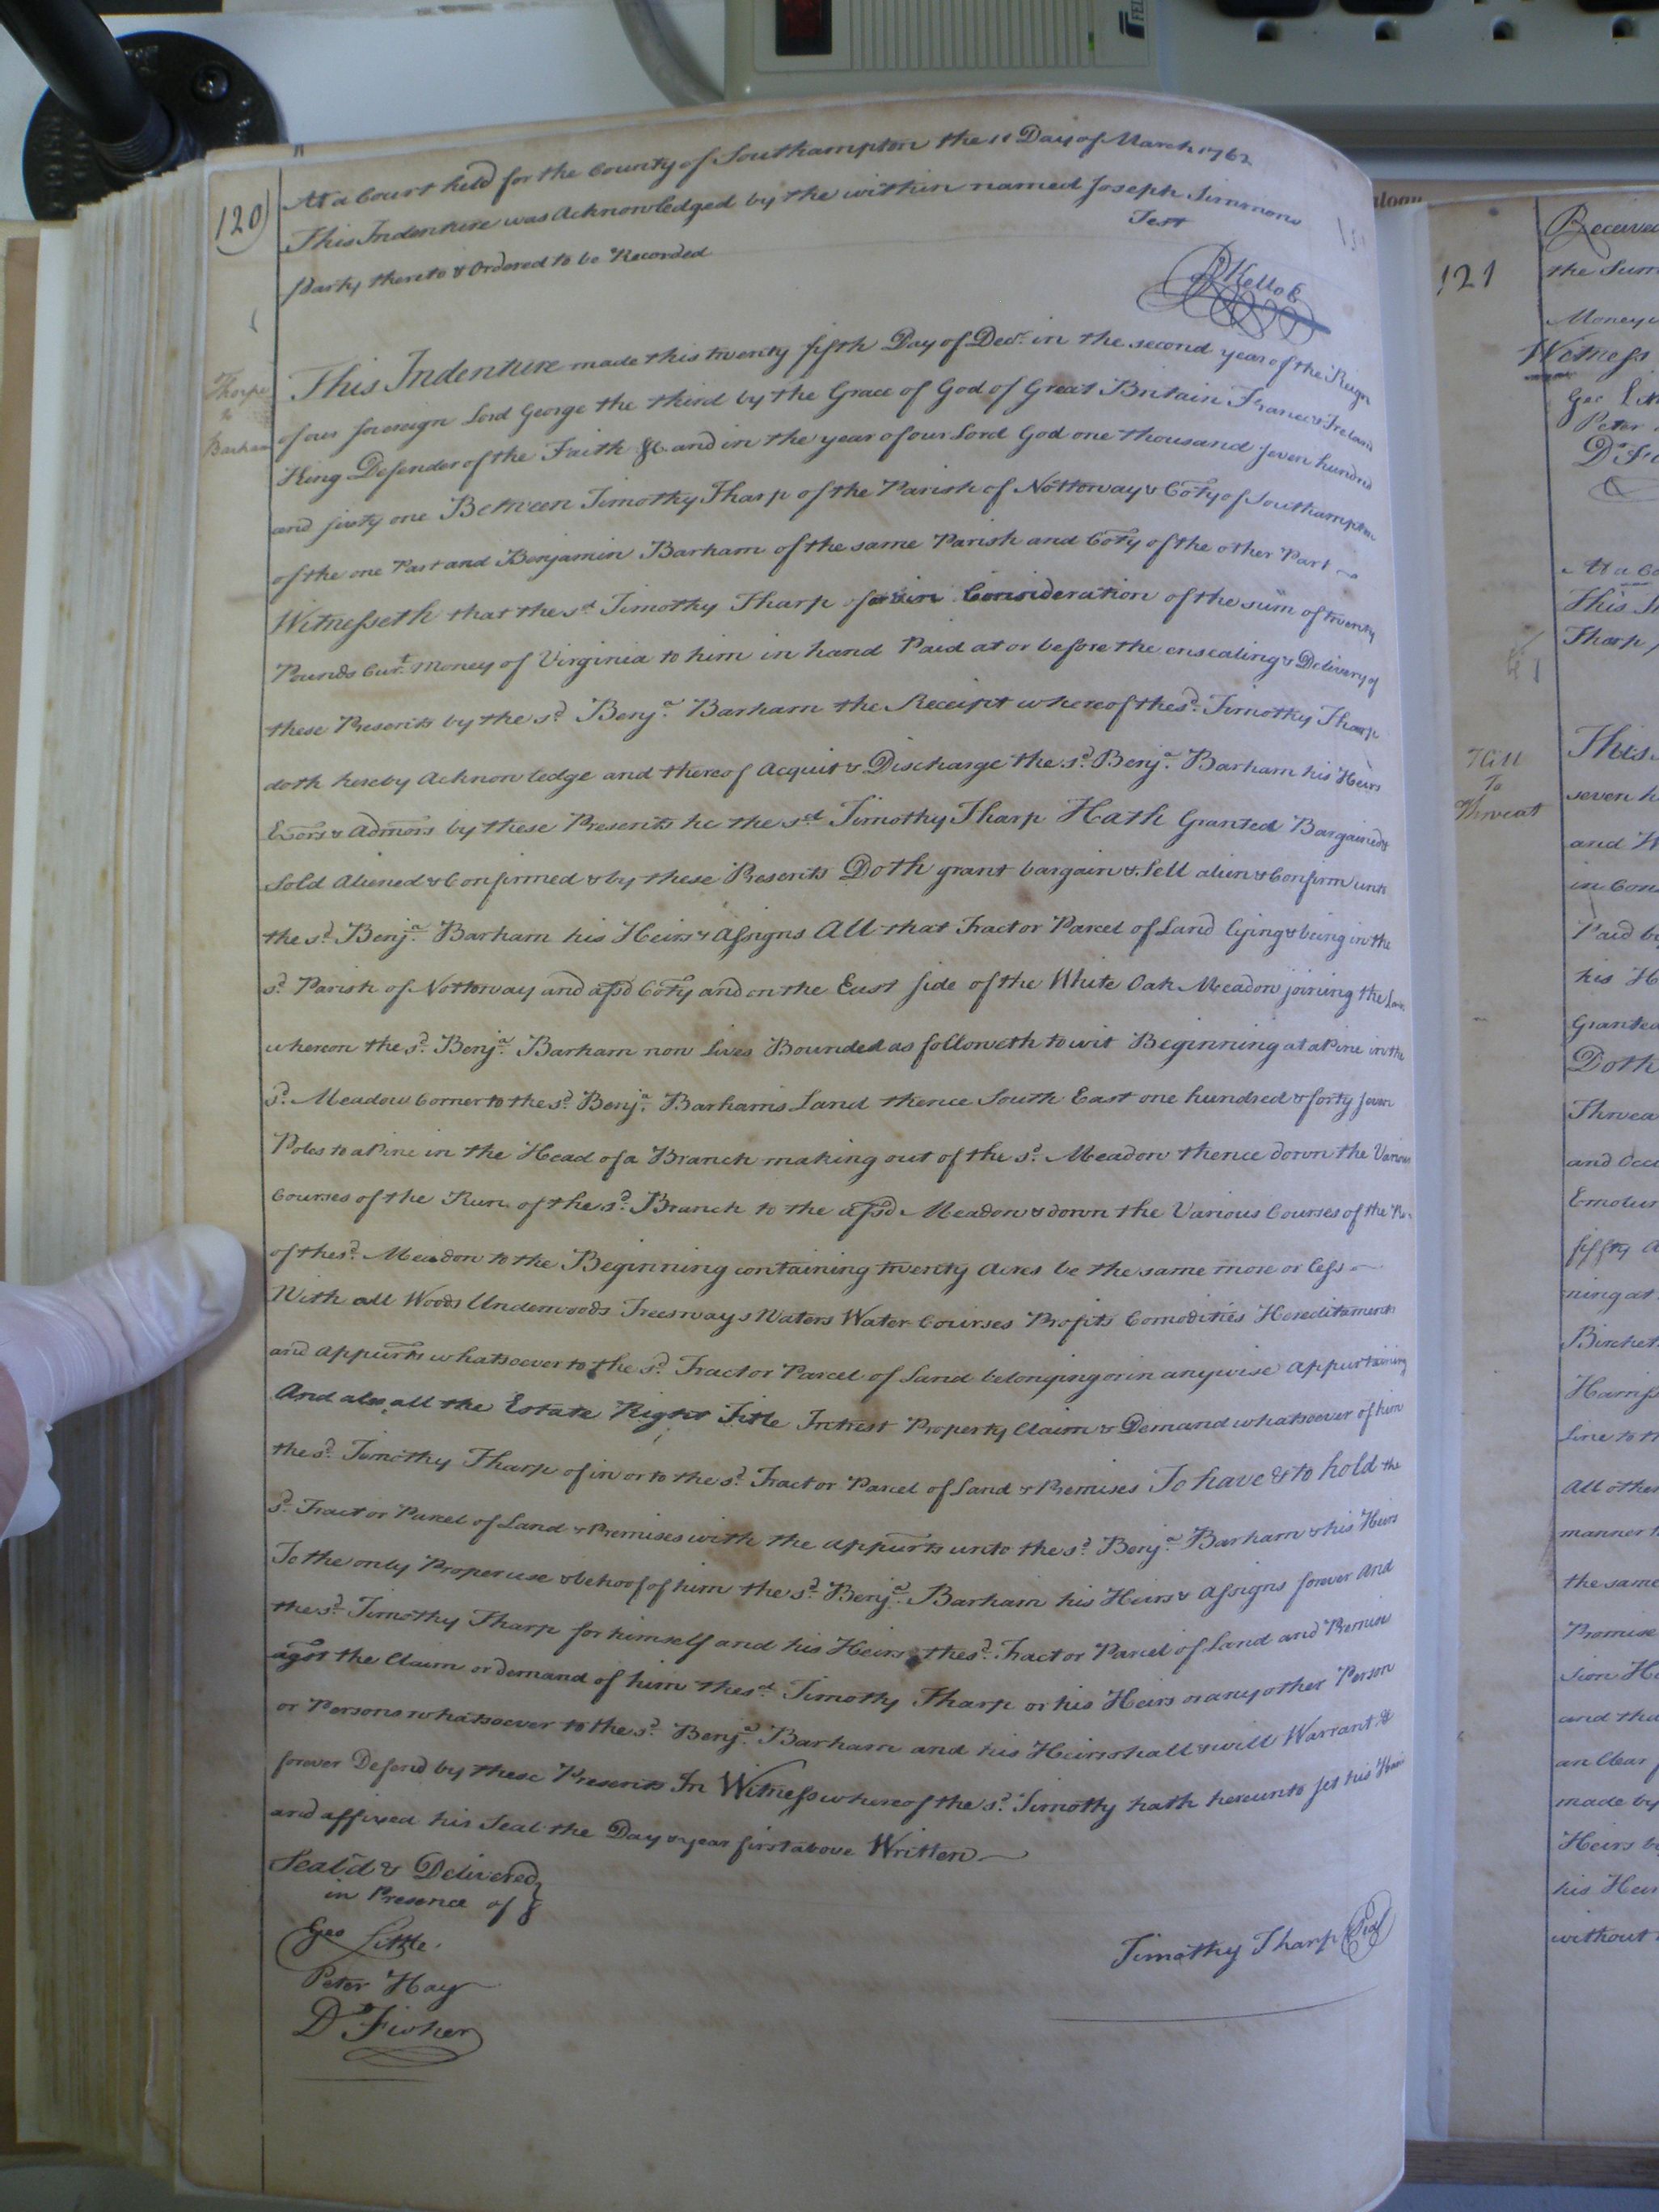 120
At a Court held for the County of Southampton the 11 Day of March 1762
This Indenture was Acknowledged by the within named Joseph Simmons
Party thereto & Ordered to be Recorded
Test
R Kello C
Thorpe
to
Barham
This Indenture made this twenty fifth Day of Decr. in the second year of the Reign
of our sovereign Lord George the third by the Grace of God of Great Britain France & Ireland
King Defender of the Faith &c. and in the year of our Lord God one thousand seven hundred
and sixty one Between Timothy Tharp of the Parish of Nottoway & Coty of Southampton
of the one Part and Benjamin Barham of the same Parish and Coty of the other Part
Witnesseth that the sd Timothy Tharp Consideration of the sum of twenty
Pounds Curt. Money of Virginia to him in hand Paid at or before the ensealing & Delivery of
these Presents by the sd. Benja. Barham the Receipt whereof the sd. Timothy Tharp
doth hereby Acknowledge and thereof Acquit & Discharge the sd. Benja. Barham his Heirs
Exors & Admors by these Presents he the sd Timothy Tharp Hath Granted Bargained &
Sold Aliened & Confirmed & by these Presents Doth grant bargain & Sell alien & Confirm unto
the sd. Benja. Barham his Heirs & Assigns All that Tract or Parcel of Land lying & being in the
sd. Parish of Nottoway and afsd Coty and on the East side of the White Oak Meadow joining the
whereon the sd. Benja. Barham now lives Bounded as followeth to wit Beginning at a Pine in the
sd. Meadow Corner to the sd. Benja. Barhams Land thence South East one hundred & forty seven
Poles to a Pine in the Head of a Branch making out of the sd. Meadow thence down the Various
Courses of the Run of the sd. Branch to the afsd. Meadow & down the Various Courses of the
of the sd. Meadow to the Beginning containing twenty Acres be the same more or less
With all Woods Underwoods Trees ways Waters Water Courses Profits Comodities Hereditaments
and appurts whatsoever to the sd. Tract or Parcel of Land belonging or in anywise appurtaining
And also all the Estate Right Title Intrest Property Claim & Demand whatsoever of him
the sd. Timothy Tharp of in or to the sd. Tract or Parcel of Land & Premises To have & to hold the
sd. Tract or Parcel of Land & Premises with the appurts unto the sd. Benja. Barham & his Heirs
To the only Proper use & behoof of him the sd. Benja. Barham his Heirs & Assigns forever And
the sd. Timothy Tharp for himself and his Heirs the sd. Tract or Parcel of Land and Premises
agst the Claim or demand of him the sd. Timothy Tharp or his Heirs or any other Person
or Persons whatsoever to the sd. Benja. Barham and his Heirs shall & will Warrant &
forever Defend by these Presents In Witness whereof the sd. Timothy hath hereunto set his Hand
and affixed his Seal the Day & year first above Written
Seal'd & Delivered
in Presence of
Geo Little
Peter Hay
D Fisher
Timothy Tharp Seal
121
Received
the Sum
Money
Witness
Geo Litt
Peter
D Fis
At a Co
This In
Tharp
Hill
To
Threeat
This
seven h
and W
in Con
Paid by
his H
Granted
Doth
Threa
and Occu
Emolum
fifty A
ning at
Birchet
Harriss
Line to th
All other
manner
the same
Promise
sion He
and tha
an Clear
made by
Heirs by
his Heir
without